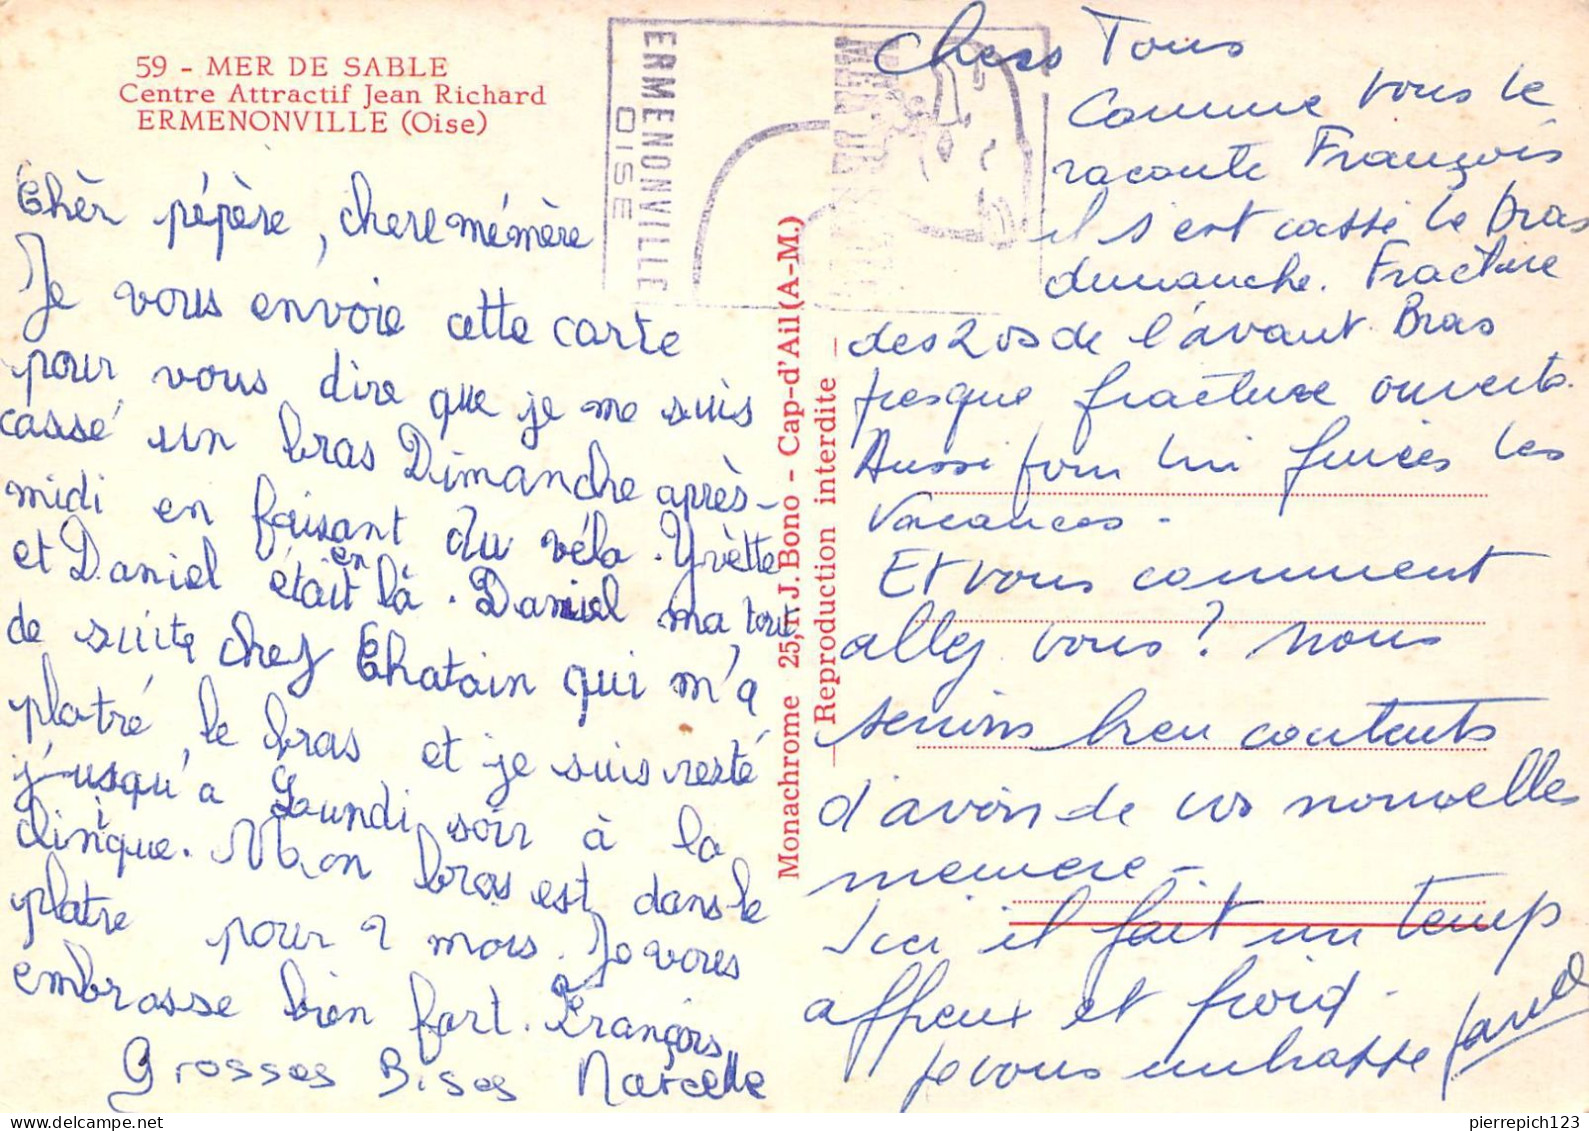 59 - MER DE SABLE
Centre Attractif Jean Richard
ERMENONVILLE (Oise)
ERMENONVILLE
OISE
MER DE SABLE
Chèr pépère, chere mémère
Je vous envoie cette carte
pour vous dire que je me suis
cassé un bras Dimanche après-
midi en faisant du vélo. Yvètte
et Daniel était en là. Daniel ma tout
de suite chez Chatain qui m'a
platré le bras et je suis resté
j'usqu'a Lundi soir à la
clinique. Mon bras est dans le
platre pour 2 mois. Je vous
embrasse bien fort. François
Grosses Bises Marcelle
Monachrome 25, r. J. Bono - Cap-d'Ail (A-M.)
Reproduction interdite
Chers Tous
Comme vous le
raconte François
il s'est cassé le bras
dimanche. Fracture
des 2 os de l'avant Bras
presque fracture ouverte.
Aussi pour lui finies les
vacances -
Et vous comment
allez vous? nous
serions bien contents
d'avoir de vos nouvelles
memere -
Ici il fait un temps
affreux et froid -
je vous embrasse
pierrepich123